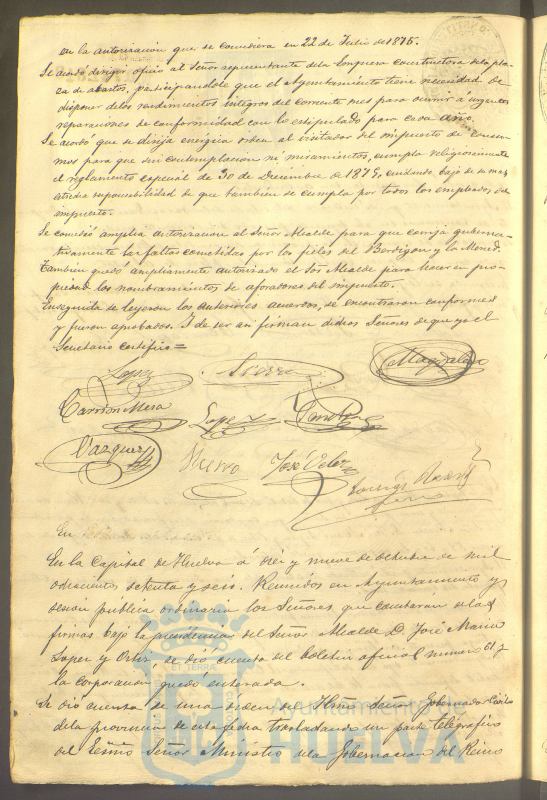 en la autorizacion que se concediera en 22 de Julio de 1875.
Se acordó dirigir oficio al Señor representante de la Empresa constructora de la pla
za de abastos, participandole que el Ayuntamiento tiene necesidad de
disponer de los rendimientos integros del corriente mes para ocurrir á urgentes
reparaciones de conformidad con lo estipulado para cada año.
Se acordó que se dirija enérgica orden al visitador del impuesto de Consu-
mos para que sin contemplacion ni miramientos, cumpla religiosamente
el reglamento especial de 30 de Diciembre de 1875, cuidando bajo su mas
estrecha responsabilidad de que tambien se cumpla por todos los empleados del
impuesto.
Se concedió amplia autorizacion al Señor Alcalde para que corrija guberna-
tivamente las faltas cometidas por los fieles del
Tambien quedó ampliamente autorizado el Sor Alcalde para hacer en pro-
piedad los nombramientos de aforadores del impuesto.
Enseguida se leyeron los anteriores acuerdos, se encontraron conformes
y fueron aprobados. I de ser asi firman dichos Señores de que yo el
Secretario certifico=
Lopez
Carrion Mesa Lopez
Vazquez José
En
En la Capital de Huelva á diez y nueve de Octubre de mil
ochocientos setenta y seis. Reunidos en Ayuntamiento y
sesion pública ordinaria los Señores que constarán de las
firmas bajo la presidencia del Señor Alcalde D. José Maria
Lopez y Ortiz, se dió cuenta del boletin oficial numero 61 y
la corporacion quedó enterada.
Se dió cuenta de una orden del Iltmo Señor Gobernador Civil
de la provincia de esta fecha trasladando un parte telegráfico
del Excmo Señor Ministro de la Gobernacion del Reino
ET TERRAE
Ayuntamiento de
HUELVA